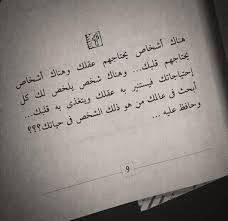 هناك أشخاص يحتاجهم عقلك وهناك أشخاص
يحتاجهم قلبك... وهناك شخص يلخص لك كل
إحتياجاتك فيستنير به عقلك ويتغذى به قلبك...
أبحث فى عالمك من هو ذلك الشخص فى حياتك؟؟؟
وحافظ عليه ...
9